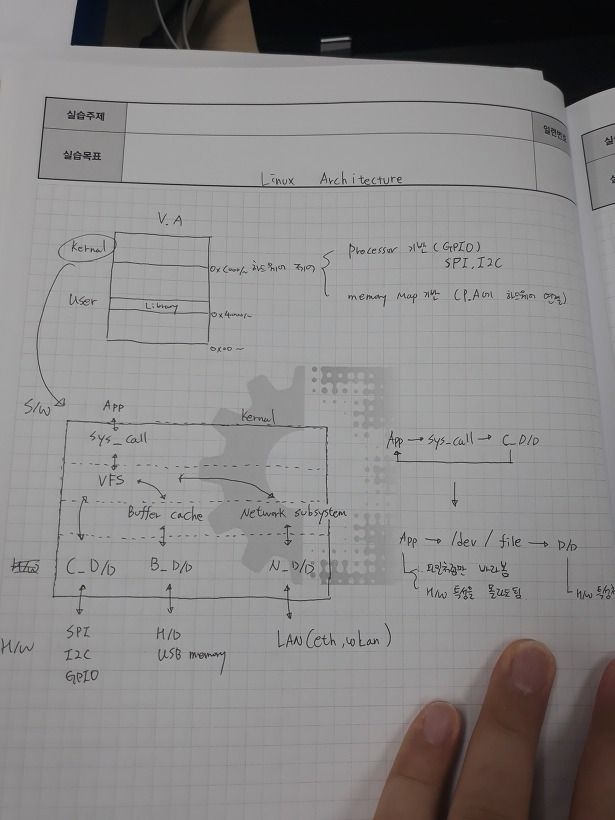 실습주제
일련번호
실습목표
Linux Architecture
V.A
Kernal
User
Library
0xC000~ 하드웨어 제어
0x4000~
0x00~
Processor 기반 (GPIO)
SPI, I2C
memory Map 기반 (P.A에 하드웨어 연결)
S/W
App
Kernal
sys_call
VFS
Buffer cache
Network subsystem
C_D/D
B_D/D
N_D/D
H/W
SPI
I2C
GPIO
H/D
USB memory
LAN (eth, wLan)
App → sys_call → C_D/D
App → /dev / file → D/D
파일처럼만 바라봄
H/W 특성을 몰라도됨
H/W 특성